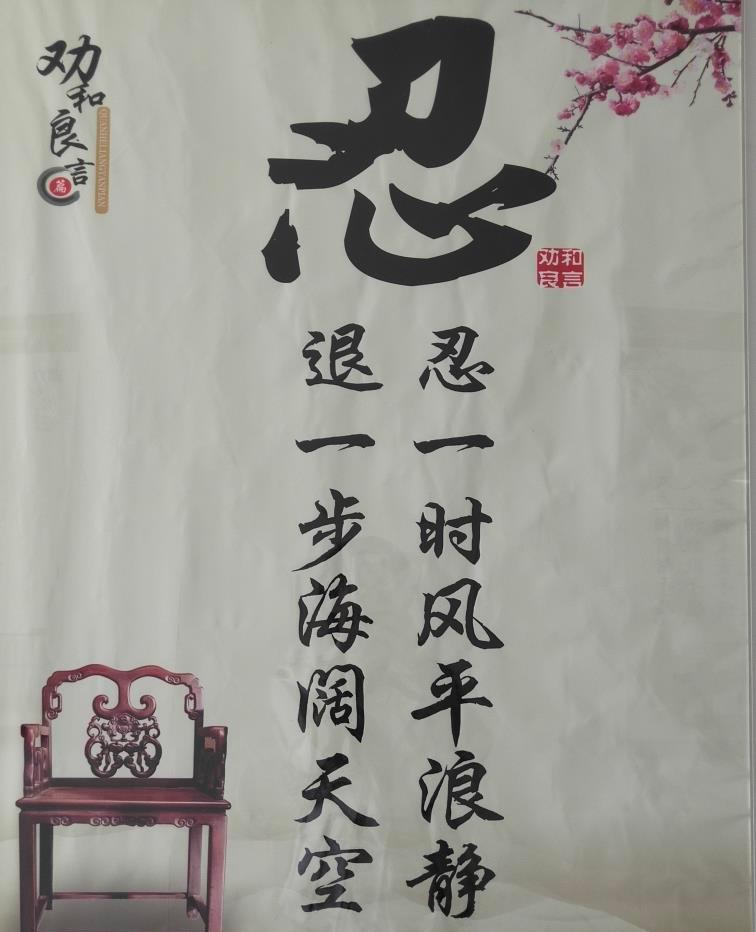 劝和良言
QUANHELIANGYANPIAN
篇
忍
劝和
良言
忍一时风平浪静
退一步海阔天空